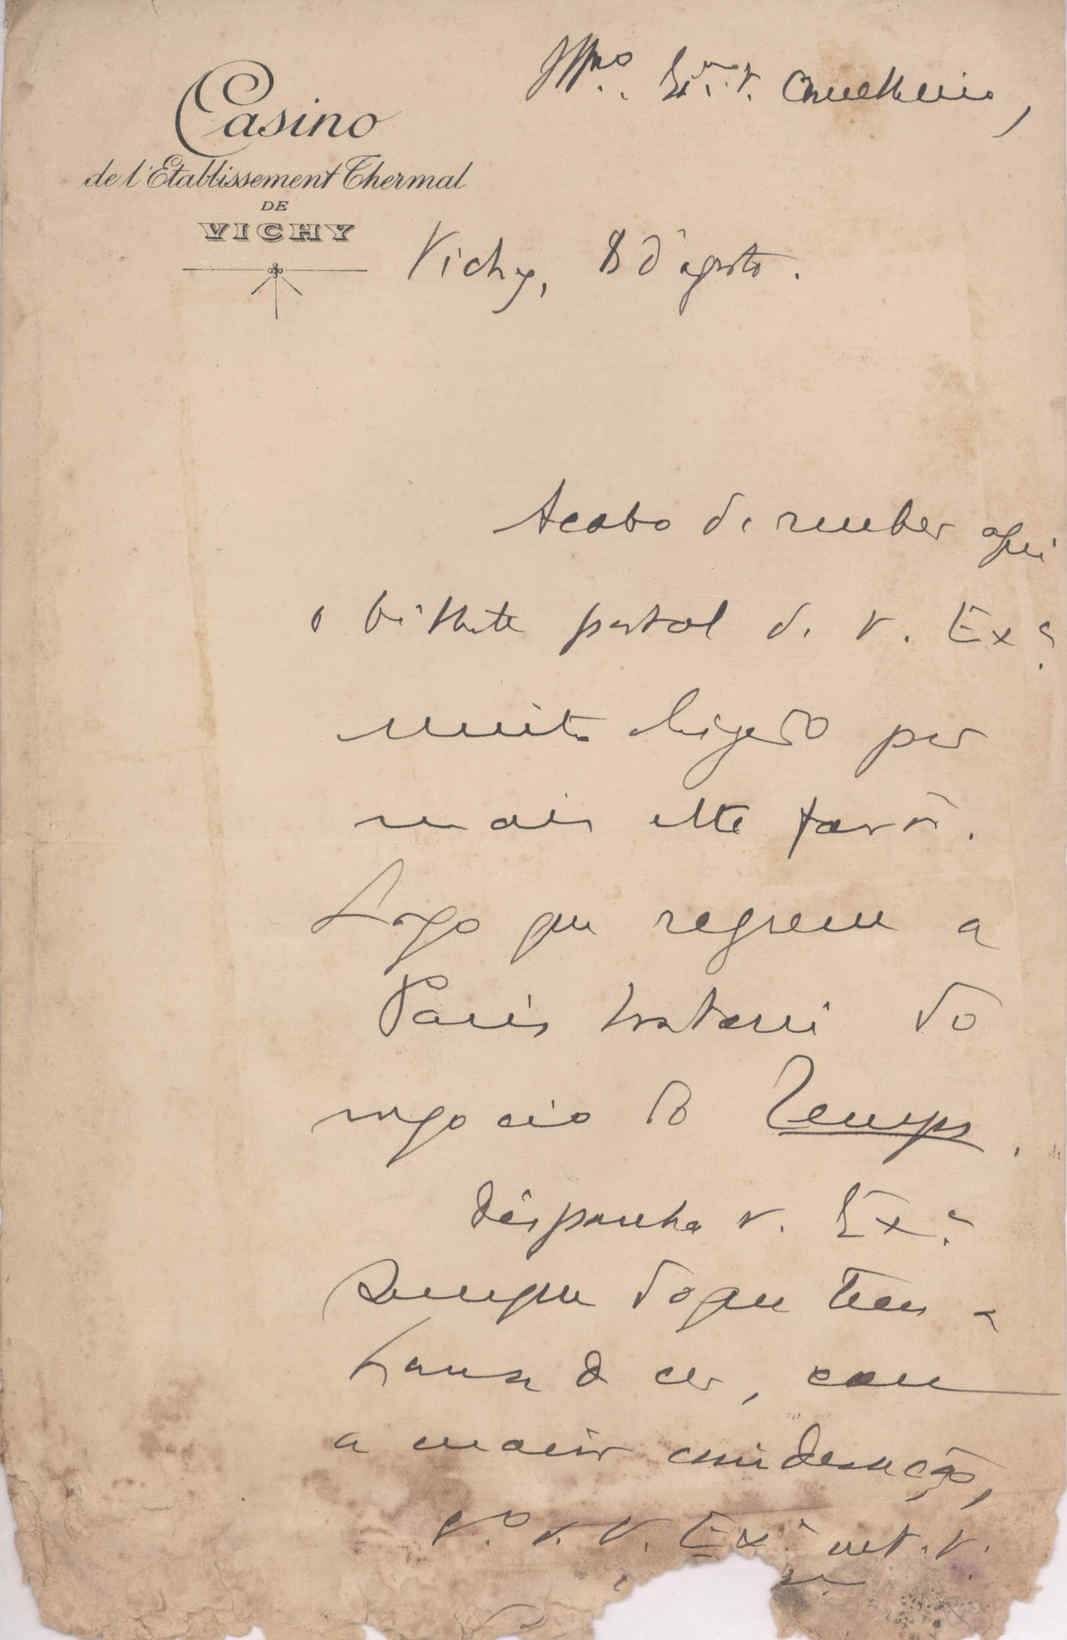 Casino
de l'Etablissement Thermal
DE
VICHY
Illmo. Exmo. Sr. Conselheiro,
Vichy, 8 d'agosto.
Acabo de receber aqui
o bilhete postal de V. Exª.
muito obrigado por
mais este favor.
Logo que regresse a
Paris tratarei do
negocio do Temps.
Disponha V. Exª.
sempre do que tem a
honra de ser, com
a maior consideração,
De V. Exª